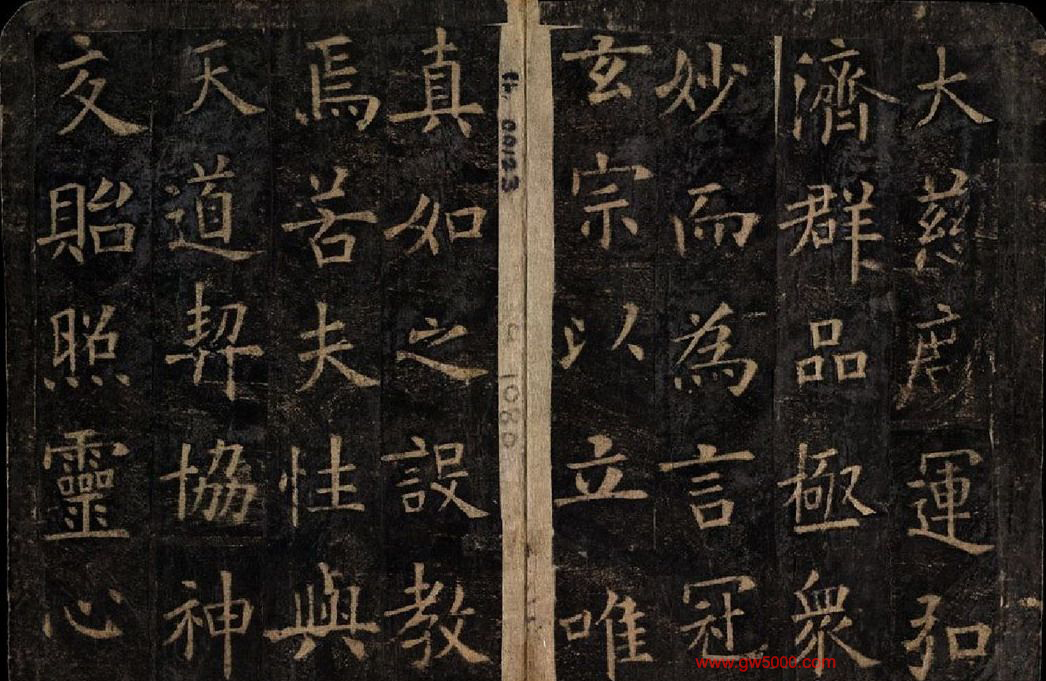 大慈運弘
濟群品極眾
妙而為言冠
玄宗以立唯
真如之設教
焉若夫性與
天道契協神
交貽照靈心
00123
1080
www.gw5000.com